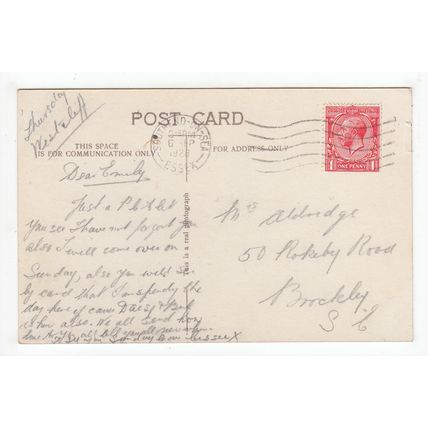 Thursday
Westcliff
POST CARD
THIS SPACE
IS FOR COMMUNICATION ONLY
FOR ADDRESS ONLY
SOUTHEND-ON-SEA
SEP
ESSEX
ONE PENNY
This is a real photograph
Dear Emily
Just a P.C to let
You see I have not forgot you
also I will come over on
Sunday, also you will see
by card that I am spending the
day here
is here also. We all send
Mrs Aldridge
50 Rokeby Road
Brockley
S E